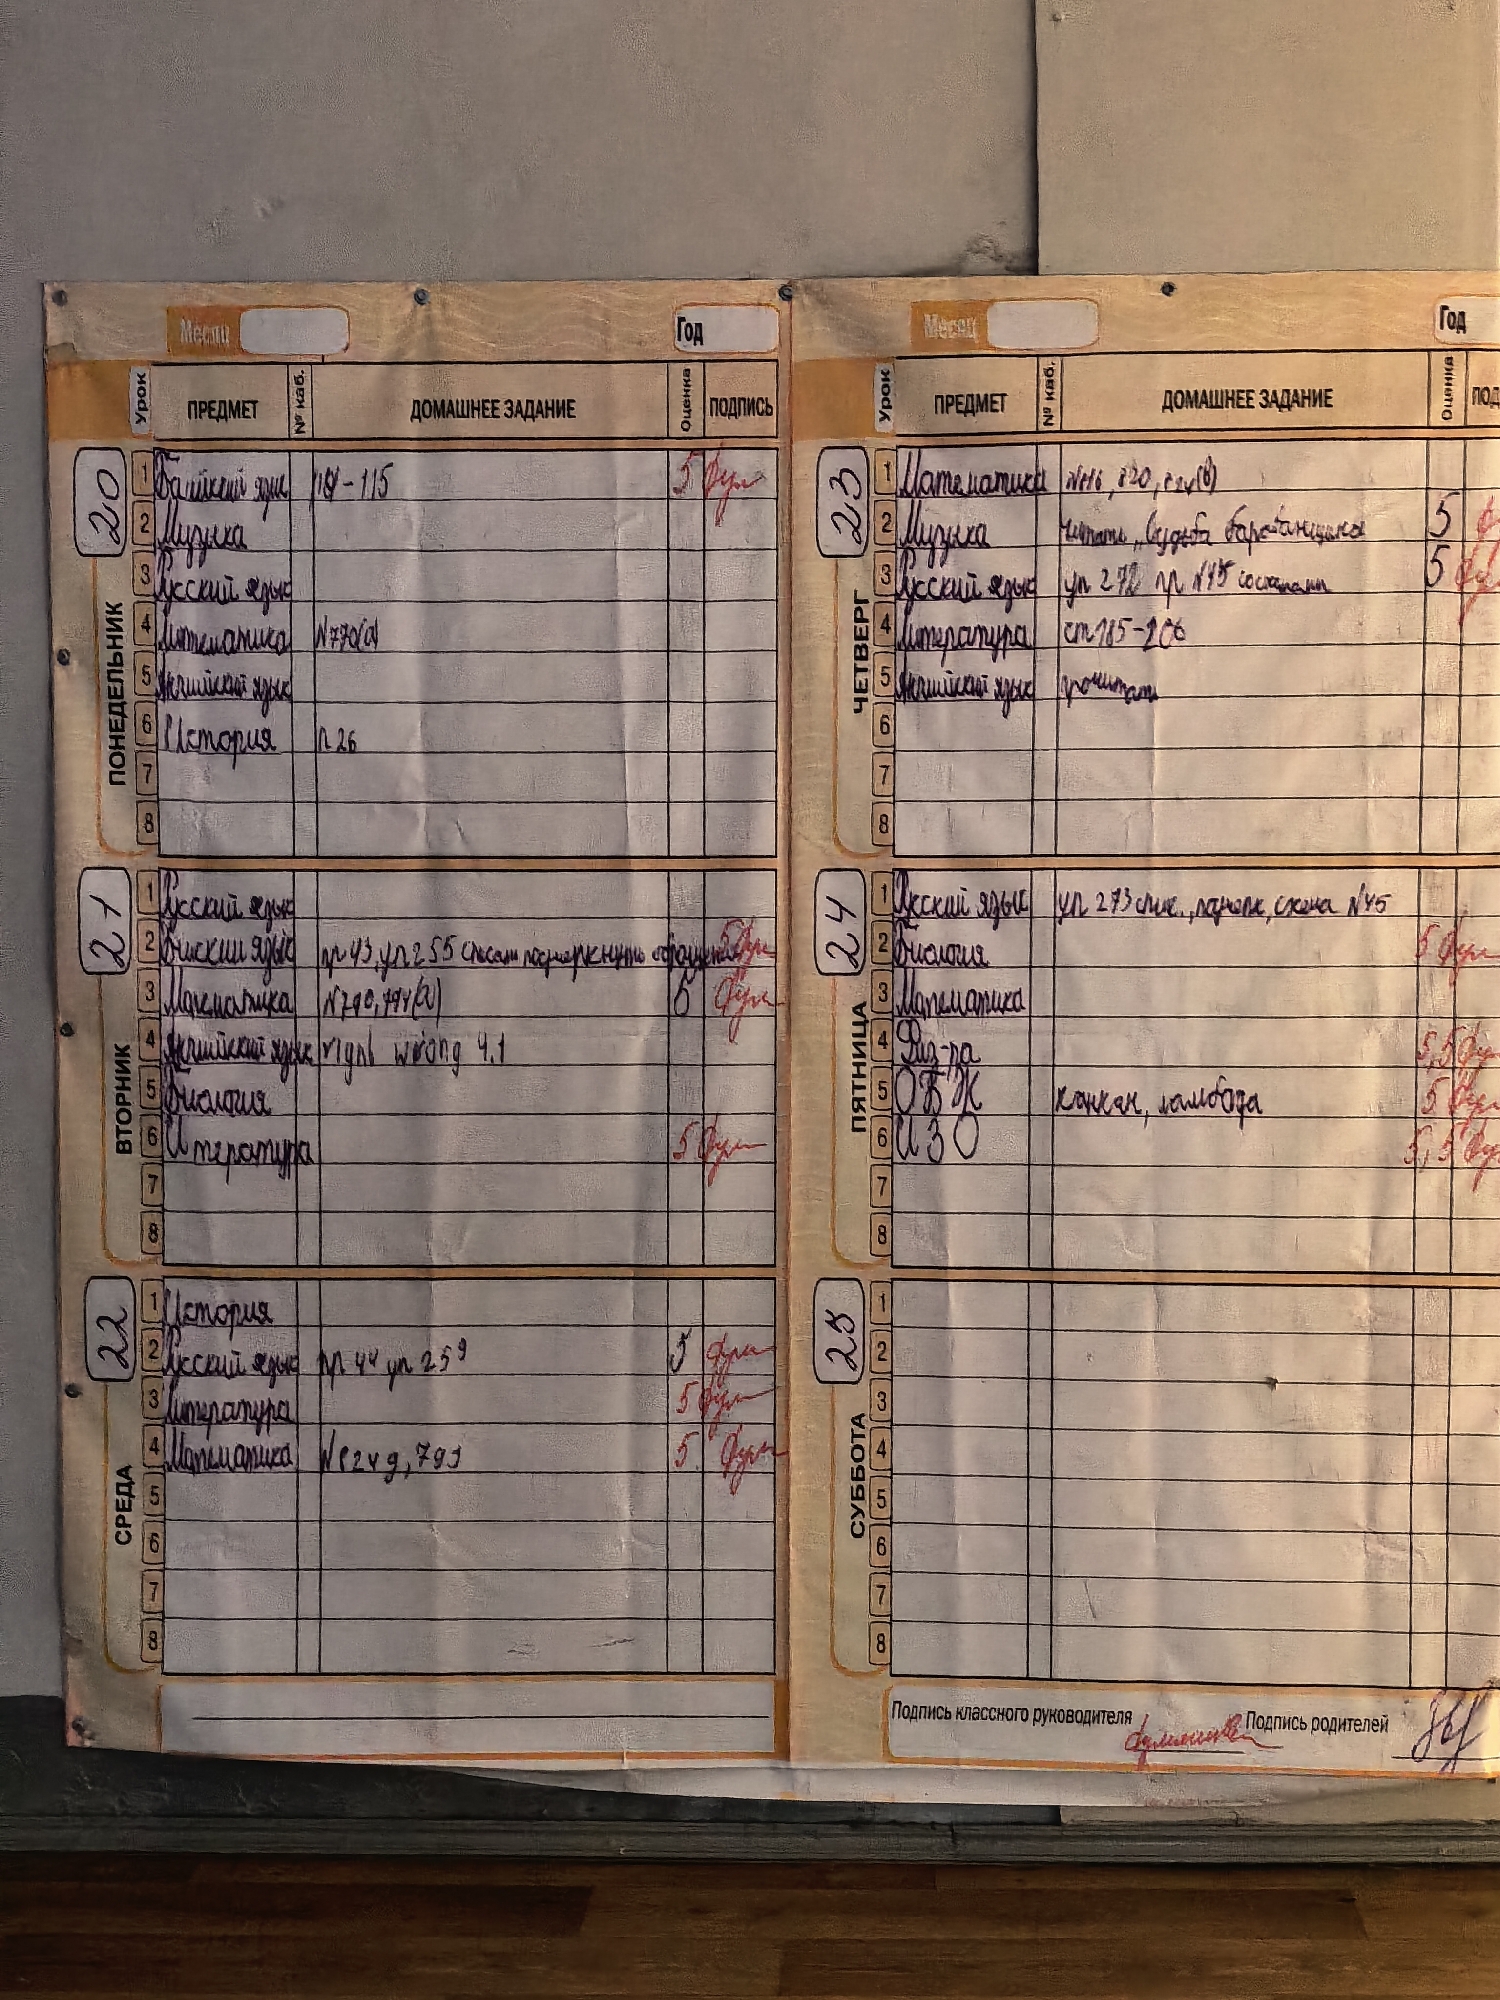 Месяц Год
Урок ПРЕДМЕТ № каб. ДОМАШНЕЕ ЗАДАНИЕ Оценка ПОДПИСЬ
20 ПОНЕДЕЛЬНИК
1 язык - 115 5
2 Музыка
3 Русский язык
4 Математика №770(а)
5 Английский язык
6 История п 26
7
8
21 ВТОРНИК
1 Русский язык
2 язык пр 43, уп 255 списать подчеркнуть обращения 5
3 Математика №790, 794(а) 5
4 Английский язык right wrong 4.1
5 Биология
6 Итература 5
7
8
22 СРЕДА
1 История
2 Русский язык пр 44 уп 259 5
3 Литература 5
4 Математика 5
5
6
7
8
Месяц Год
Урок ПРЕДМЕТ № каб. ДОМАШНЕЕ ЗАДАНИЕ Оценка ПОД
23 ЧЕТВЕРГ
1 Математика 820,
2 Музыка читать „Судьба барабанщика 5
3 Русский язык уп 272 пр №45 5
4 Литература ст 185-206
5 Английский язык прочитать
6
7
8
24 ПЯТНИЦА
1 Русский язык уп 273 схема №45
2 Биология 5
3 Математика
4 Физ-ра 5,5
5 ОБЖ канкан, ламбада 5
6 ИЗО 5,5
7
8
25 СУББОТА
1
2
3
4
5
6
7
8
Подпись классного руководителя Подпись родителей